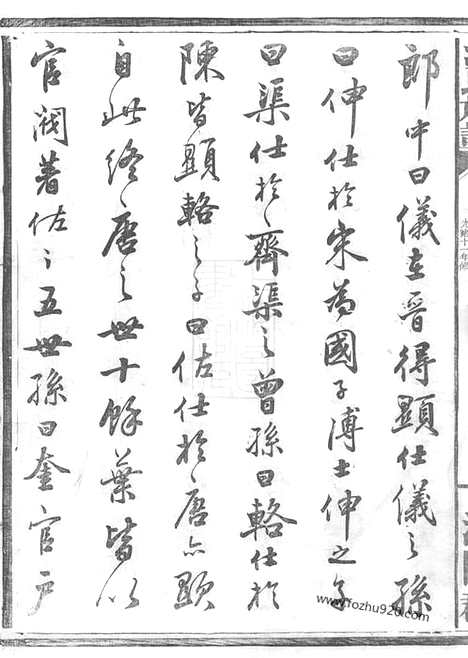 郎中曰儀在晉得顯仕儀之孫
曰伸仕於宋為國子博士伸之子
曰渠仕於齊渠之曾孫曰輅仕於
陳皆顯輅之子曰佐仕於唐亦顯
自此終唐之世十餘葉皆以
官閥著佐之五世孫曰奎官戶
www.fozhu920.com